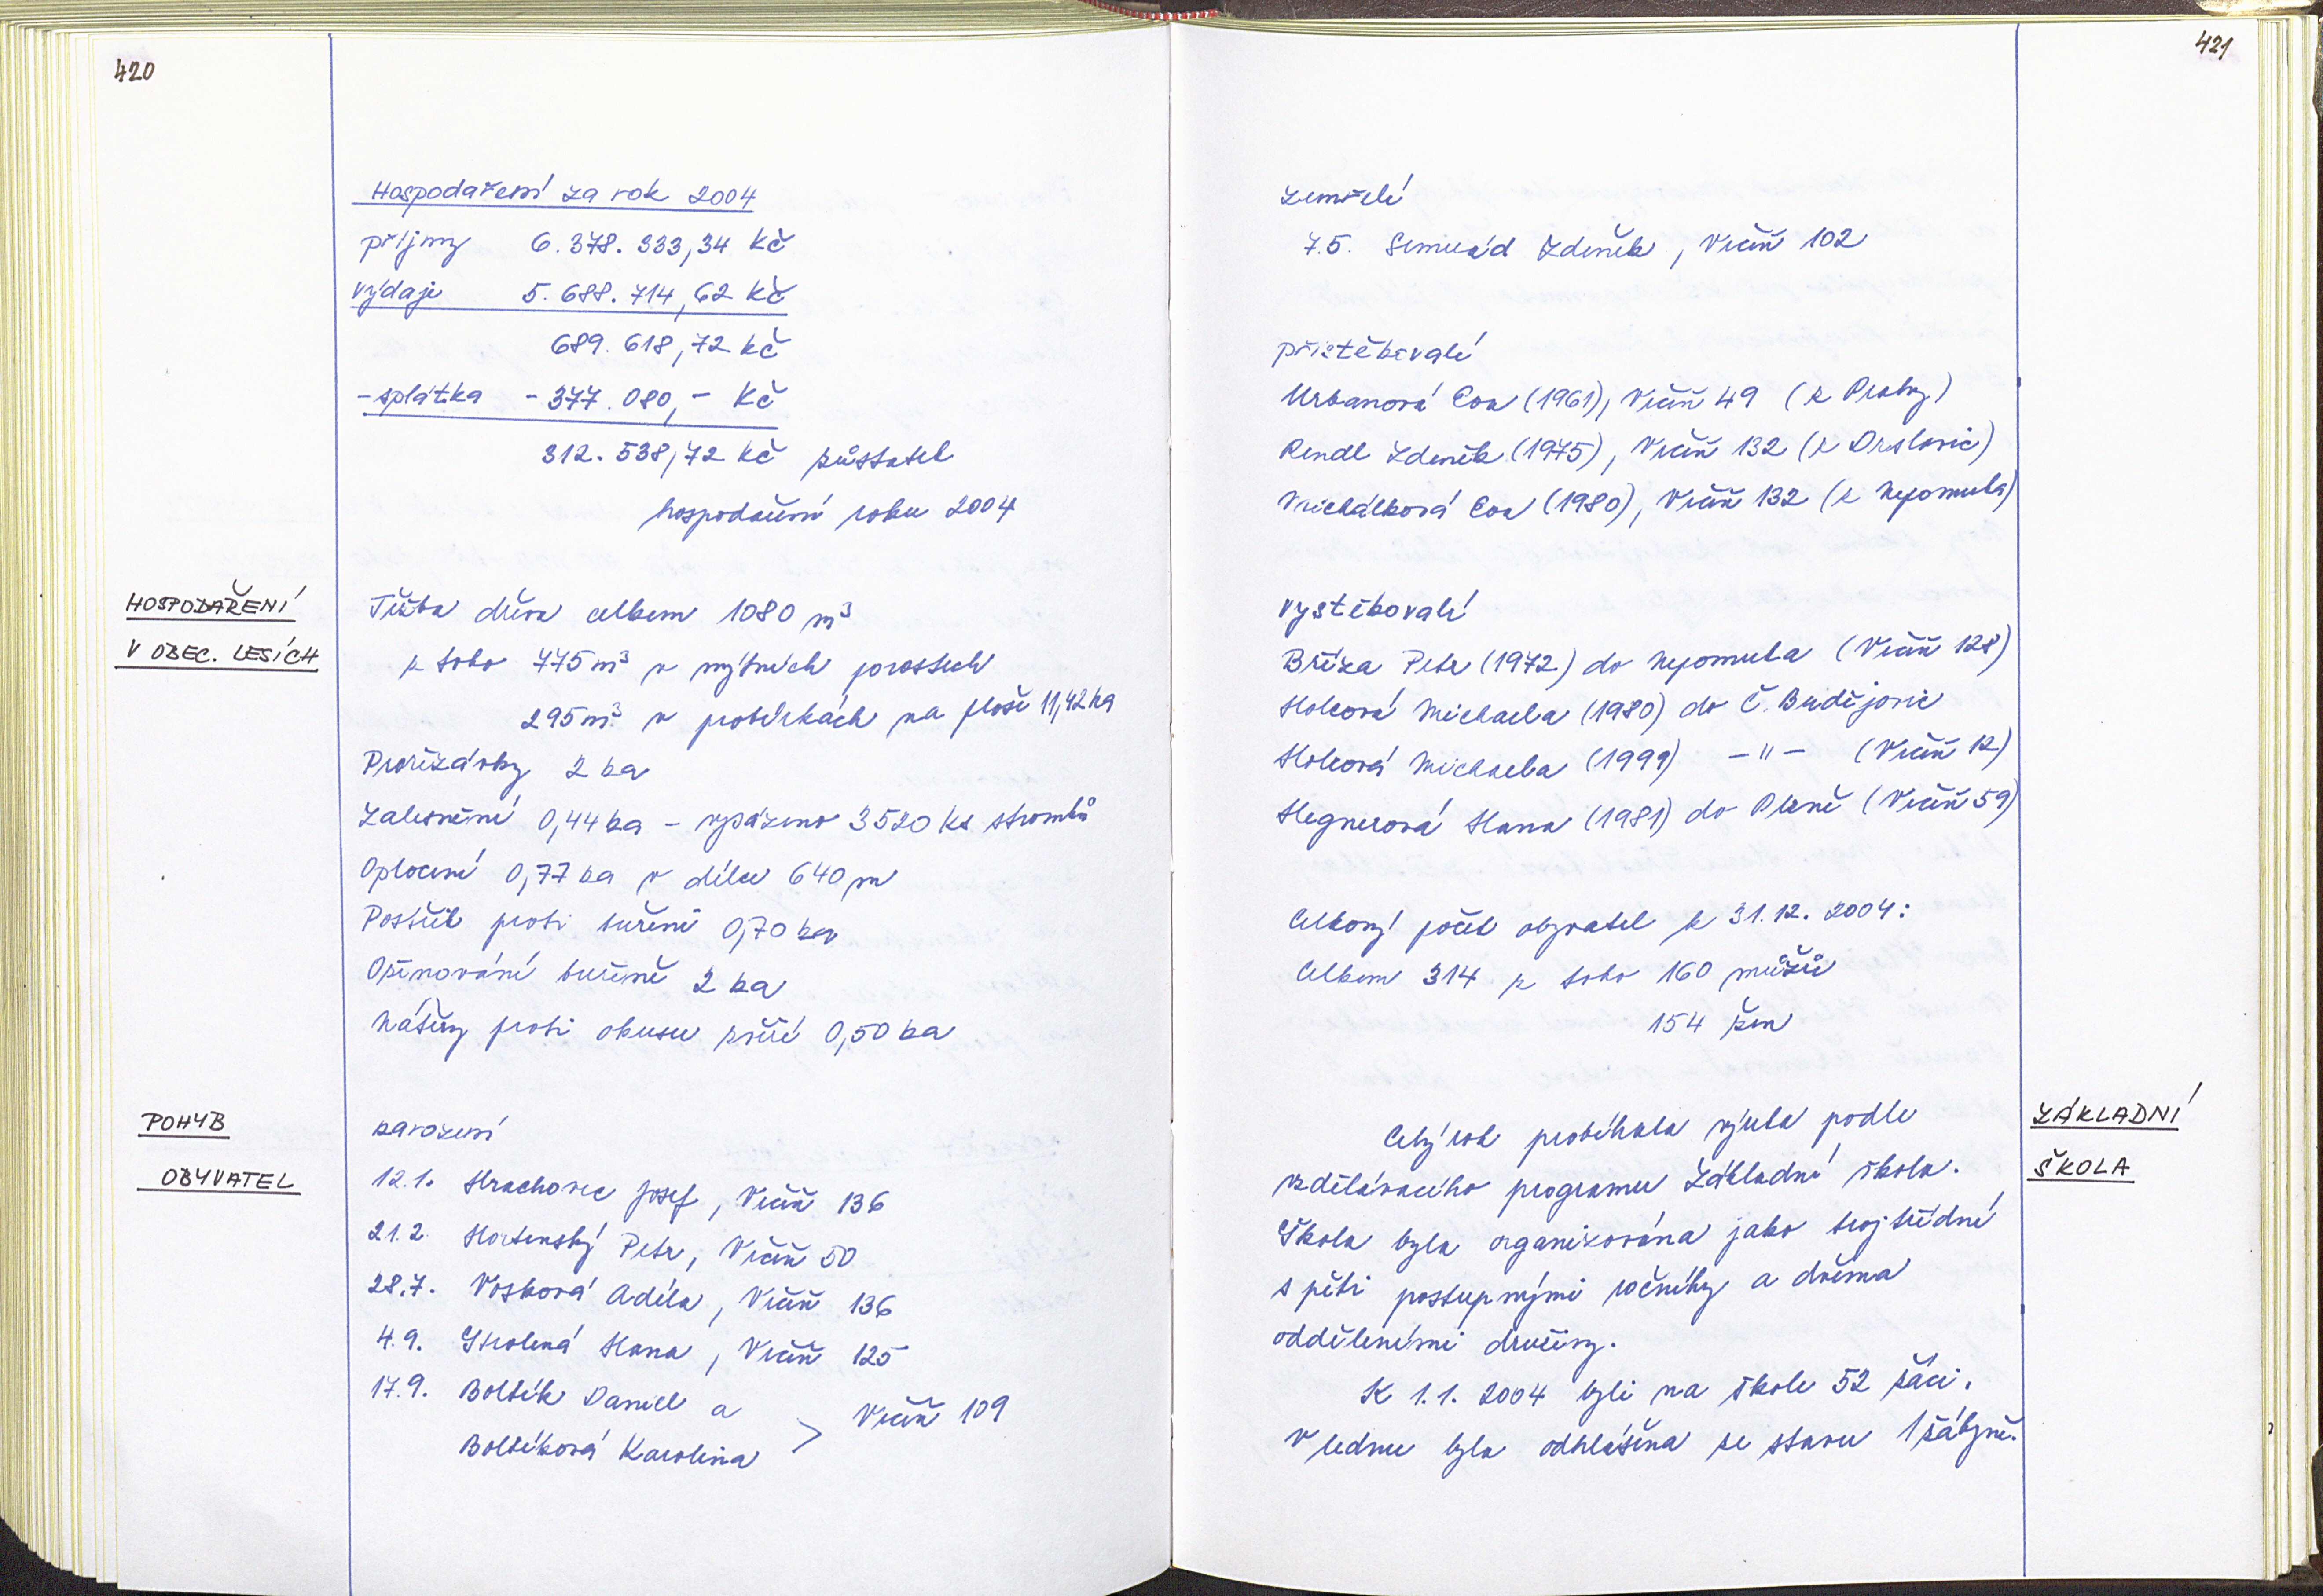 420
Hospodaření za rok 2004
příjmy 6.378.333,34 Kč
výdaje 5.688.714,62 Kč
689.618,72 Kč
- splátka - 377.080,- Kč
312.538,72 Kč zůstatek
hospodaření roku 2004
HOSPODAŘENÍ
V OBEC. LESÍCH
Těžba dřeva celkem 1080 m³
z toho 775 m³ v mýtních porostech
295 m³ v probírkách na ploše 11,42 ha
Prořezávky 2 ha
Zalesnění 0,44 ha - vysázeno 3520 ks stromků
Oplocení 0,77 ha v délce 640 m
Postřik proti buřeni 0,70 ha
Ožínování buřeně 2 ha
Nátěry proti okusu zvěří 0,50 ha
POHYB
OBYVATEL
narození
12.1. Hrachovec Josef, Vrčeň 136
21.2. Hortenský Petr, Vrčeň 50
28.7. Vosková Adéla, Vrčeň 136
4.9. Strolená Hana, Vrčeň 125
17.9. Boltík Daniel a
Boltíková Karolina > Vrčeň 109
421
zemřelí
7.5. Zdeněk, Vrčeň 102
přistěhovalí
Urbanová Eva (1961), Vrčeň 49 (z Prahy)
Rendl Zdeněk (1975), Vrčeň 132 (z Drslavic)
Michálková Eva (1980), Vrčeň 132 (z Nepomuka)
vystěhovalí
Bříza Petr (1972) do Nepomuka (Vrčeň 128)
Holcová Michaela (1980) do Č. Budějovic
Holcová Michaela (1999) - " - (Vrčeň 12)
Hegnerová Hana (1981) do Plzně (Vrčeň 59)
Celkový počet obyvatel k 31.12. 2004:
Celkem 314 z toho 160 mužů
154 žen
ZÁKLADNÍ
ŠKOLA
Celý rok probíhala výuka podle
vzdělávacího programu Základní škola.
Škola byla organizována jako trojtřídní
s pěti postupnými ročníky a dvěma
odděleními družiny.
K 1.1. 2004 byli na škole 52 žáci.
V lednu byla odhlášena ze stavu 1 žákyně.